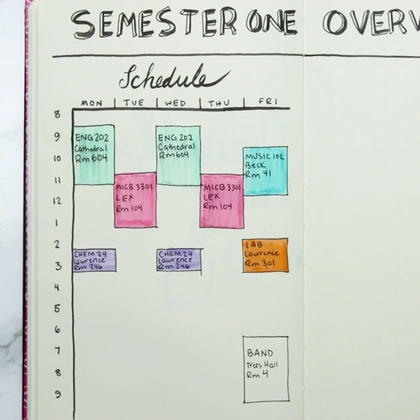 SEMESTER ONE OVERV
Schedule
MON | TUE | WED | THU | FRI
8
9
10
11
12
1
2
3
4
5
6
7
8
9
ENG 202
Cathedral
Rm 604
ENG 202
Cathedral
Rm 604
MUSIC 102
Beck
Rm 41
MICB 3301
LEX
Rm 104
MICB 3301
LEX
Rm 104
LAB
Lawrence
Rm 301
CHEM 24
Lawrence
Rm 246
CHEM 24
Lawrence
Rm 246
BAND
Trees Hall
Rm 4